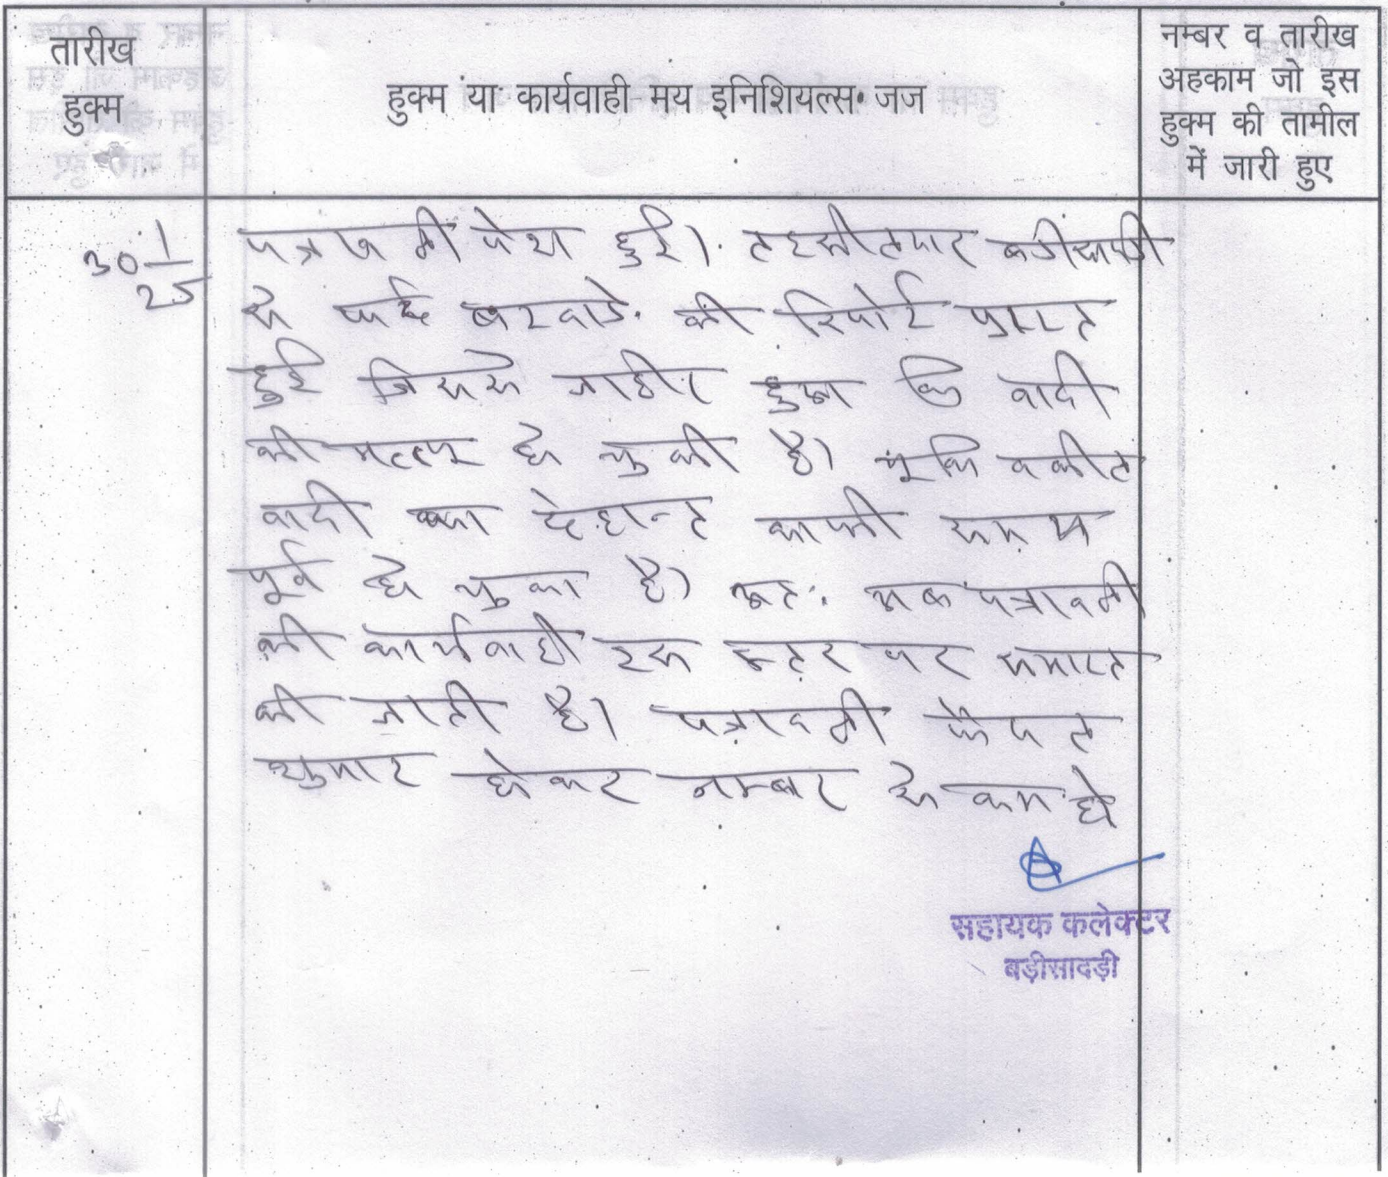 तारीख
हुक्म
हुक्म या कार्यवाही मय इनिशियल्स जज
नम्बर व तारीख
अहकाम जो इस
हुक्म की तामील
में जारी हुए
30/1/25
पत्रावली पेश हुई। तहसीलदार बडीसादडी
से फर्द बटवाडे की रिपोर्ट प्राप्त
हुई जिससे जाहीर हुआ कि वादी
की मृत्यु हो चुकी है। चूंकि वकील
वादी का देहान्त काफी समय
पूर्व हो चुका है। अतः अब पत्रावली
की कार्यवाही इस स्तर पर समाप्त
की जाती है। पत्रावली फैसल
शुमार होकर नम्बर से कम हो
सहायक कलेक्टर
बड़ीसादड़ी